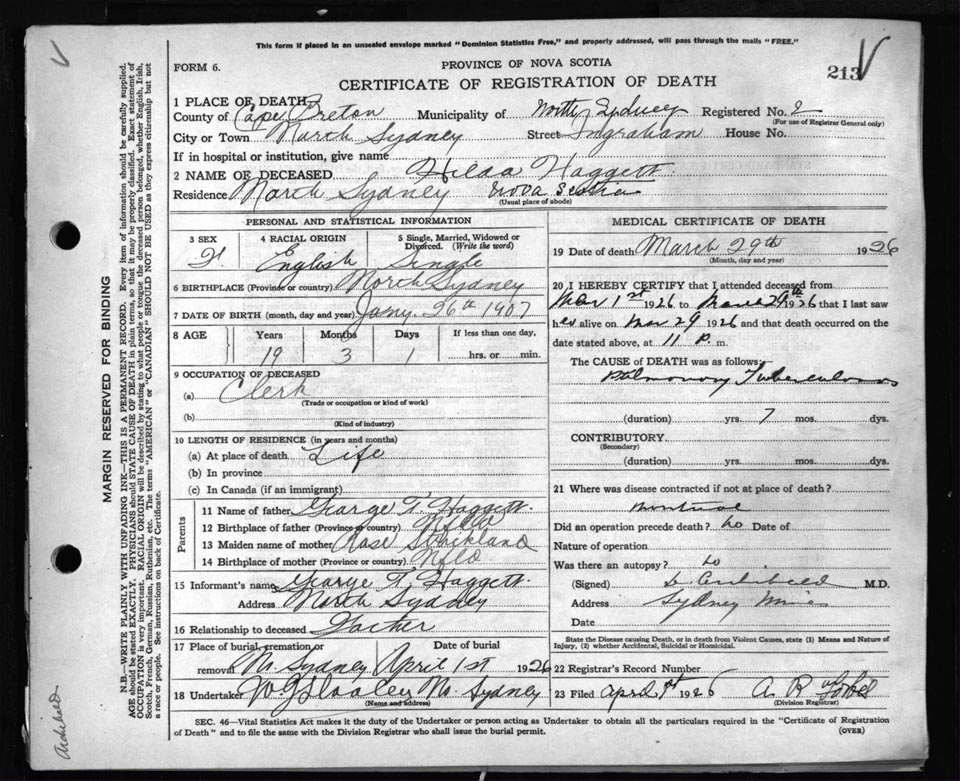 This form if placed in an unsealed envelope marked "Dominion Statistics Free," and properly addressed, will pass through the mails "FREE."
FORM 6.
PROVINCE OF NOVA SCOTIA
CERTIFICATE OF REGISTRATION OF DEATH
213
1 PLACE OF DEATH
County of Cape Breton Municipality of North Sydney Registered No. 2
(For use of Registrar General only)
City or Town North Sydney Street Ingraham House No.
If in hospital or institution, give name
2 NAME OF DECEASED Hilda Haggett
Residence North Sydney Nova Scotia
(Usual place of abode)
PERSONAL AND STATISTICAL INFORMATION
3 SEX 4 RACIAL ORIGIN 5 Single, Married, Widowed or Divorced. (Write the word)
F. English Single
6 BIRTHPLACE (Province or country) North Sydney
7 DATE OF BIRTH (month, day and year) Jany. 26th 1907
8 AGE Years Months Days If less than one day,
19 3 1 hrs. or min.
9 OCCUPATION OF DECEASED
(a) Clerk
(Trade or occupation or kind of work)
(b)
(Kind of industry)
10 LENGTH OF RESIDENCE (in years and months)
(a) At place of death Life
(b) In province
(c) In Canada (if an immigrant)
Parents
11 Name of father George T. Haggett
12 Birthplace of father (Province or country) Nfld
13 Maiden name of mother Rose Strickland
14 Birthplace of mother (Province or country) Nfld
15 Informant's name George T. Haggett
Address North Sydney
16 Relationship to deceased Father
17 Place of burial, cremation or removal Date of burial
N. Sydney April 1st 1926
18 Undertaker No. Sydney
(Name and address)
MEDICAL CERTIFICATE OF DEATH
19 Date of death March 29th 1926
(Month, day and year)
20 I HEREBY CERTIFY that I attended deceased from
Mar 1st 1926 to March 29th 1926 that I last saw
her alive on Mar 29 1926 and that death occurred on the
date stated above, at 11 P. m.
The CAUSE OF DEATH was as follows:
Pulmonary Tuberculosis
(duration) yrs. 7 mos. dys.
CONTRIBUTORY
(Secondary)
(duration) yrs. mos. dys.
21 Where was disease contracted if not at place of death?
Montreal
Did an operation precede death? no Date of
Nature of operation
Was there an autopsy? no
(Signed) Archibald M.D.
Address Sydney Mines
Date
State the Disease causing Death, or in death from Violent Causes, state (1) Means and Nature of
Injury, (2) whether Accidental, Suicidal or Homicidal.
22 Registrar's Record Number
23 Filed April 1st 1926 A. R.
(Division Registrar)
SEC. 46—Vital Statistics Act makes it the duty of the Undertaker or person acting as Undertaker to obtain all the particulars required in the "Certificate of Registration
of Death" and to file the same with the Division Registrar who shall issue the burial permit.
(OVER)
MARGIN RESERVED FOR BINDING
N.B.—WRITE PLAINLY WITH UNFADING INK—THIS IS A PERMANENT RECORD. Every item of information should be carefully supplied.
AGE should be stated EXACTLY. PHYSICIANS should STATE CAUSE OF DEATH in plain terms, so that it may be properly classified. Exact statement of
OCCUPATION is very important. RACIAL ORIGIN will be described by stating to what people or tongue the deceased person belonged, whether English, Irish,
Scotch, French, German, Russian, Ruthenian, etc. The terms "AMERICAN" or "CANADIAN" SHOULD NOT BE USED as they express citizenship but not
a race or people. See instructions on back of Certificate.
Archibald